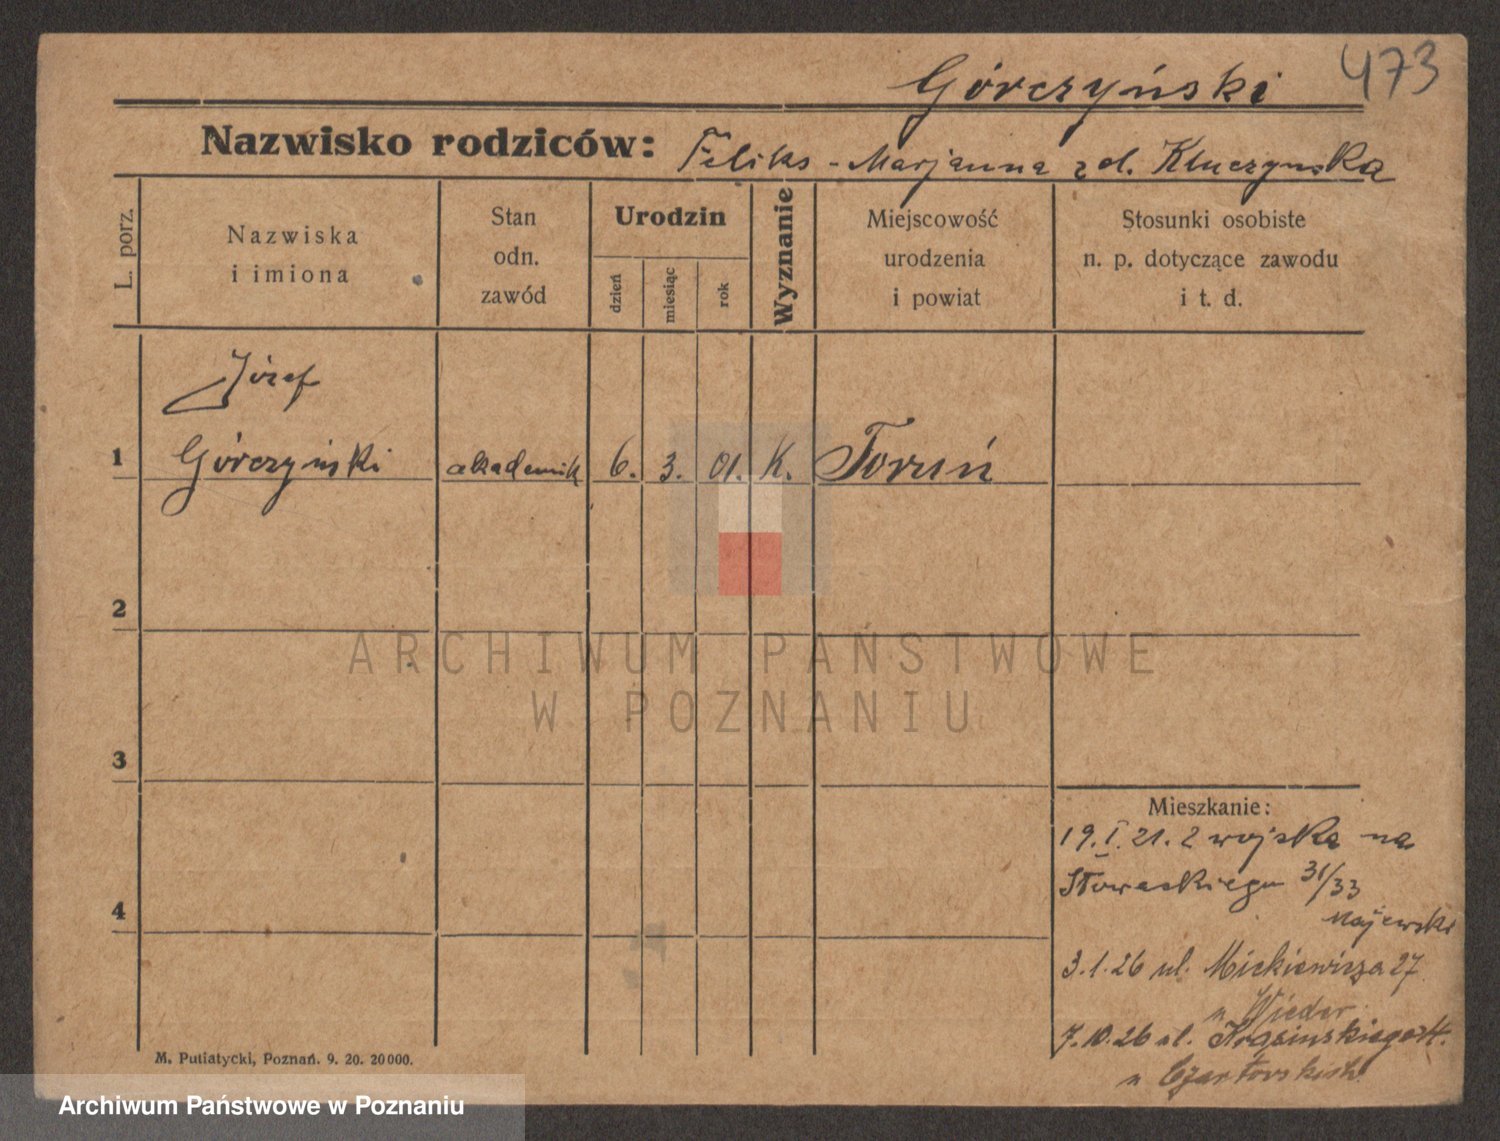 473
Górczyński
Nazwisko rodziców: Feliks - Marjanna zd. Kluczynska
L. porz.
Nazwiska
i imiona
Stan
odn.
zawód
Urodzin
dzień
miesiąc
rok
Wyznanie
Miejscowość
urodzenia
i powiat
Stosunki osobiste
n. p. dotyczące zawodu
i t. d.
Józef
1 Górczyński akademik 6. 3. 01. K. Toruń
2
3
4
ARCHIWUM PAŃSTWOWE
W POZNANIU
Mieszkanie:
19.I.21. z wojska na
Słowackiego 31/33
Majewski
3.1.26 ul. Mickiewicza 27
u Wieder
7.10.26 ul. Krasinskiego
u Czartorskich
M. Putiatycki, Poznań. 9. 20. 20000.
Archiwum Państwowe w Poznaniu